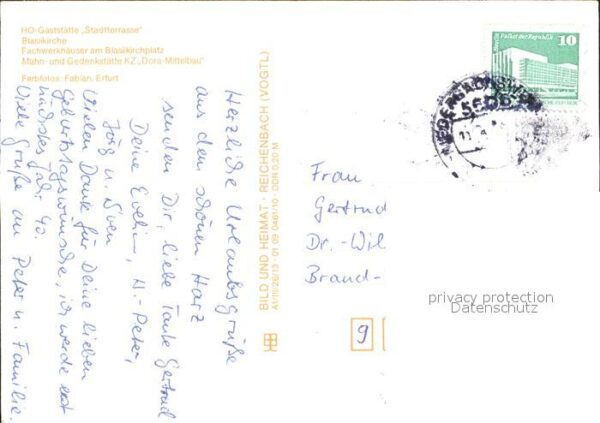 HO-Gaststätte „Stadtterrasse"
Blasiikirche
Fachwerkhäuser am Blasiikirchplatz
Mahn- und Gedenkstätte KZ „Dora-Mittelbau"
Farbfotos: Fabian, Erfurt
Herzliche Urlaubsgrüße
aus dem schönen Harz
senden Dir, liebe Tante Gertrud
Deine Evelin, H.-Peter,
Jörg u. Sven
Vielen Dank für Deine lieben
Geburtstagswünsche, ich werde erst
nächstes Jahr 40.
Viele Grüße an Peter u. Familie.
BILD UND HEIMAT · REICHENBACH (VOGTL)
A1/III/26/13 · 01 09 0461/10 · DDR 0,20 M
10
Palast der Republik
Frau
Gertrud
Dr.-Wil
Brand-
9
privacy protection
Datenschutz